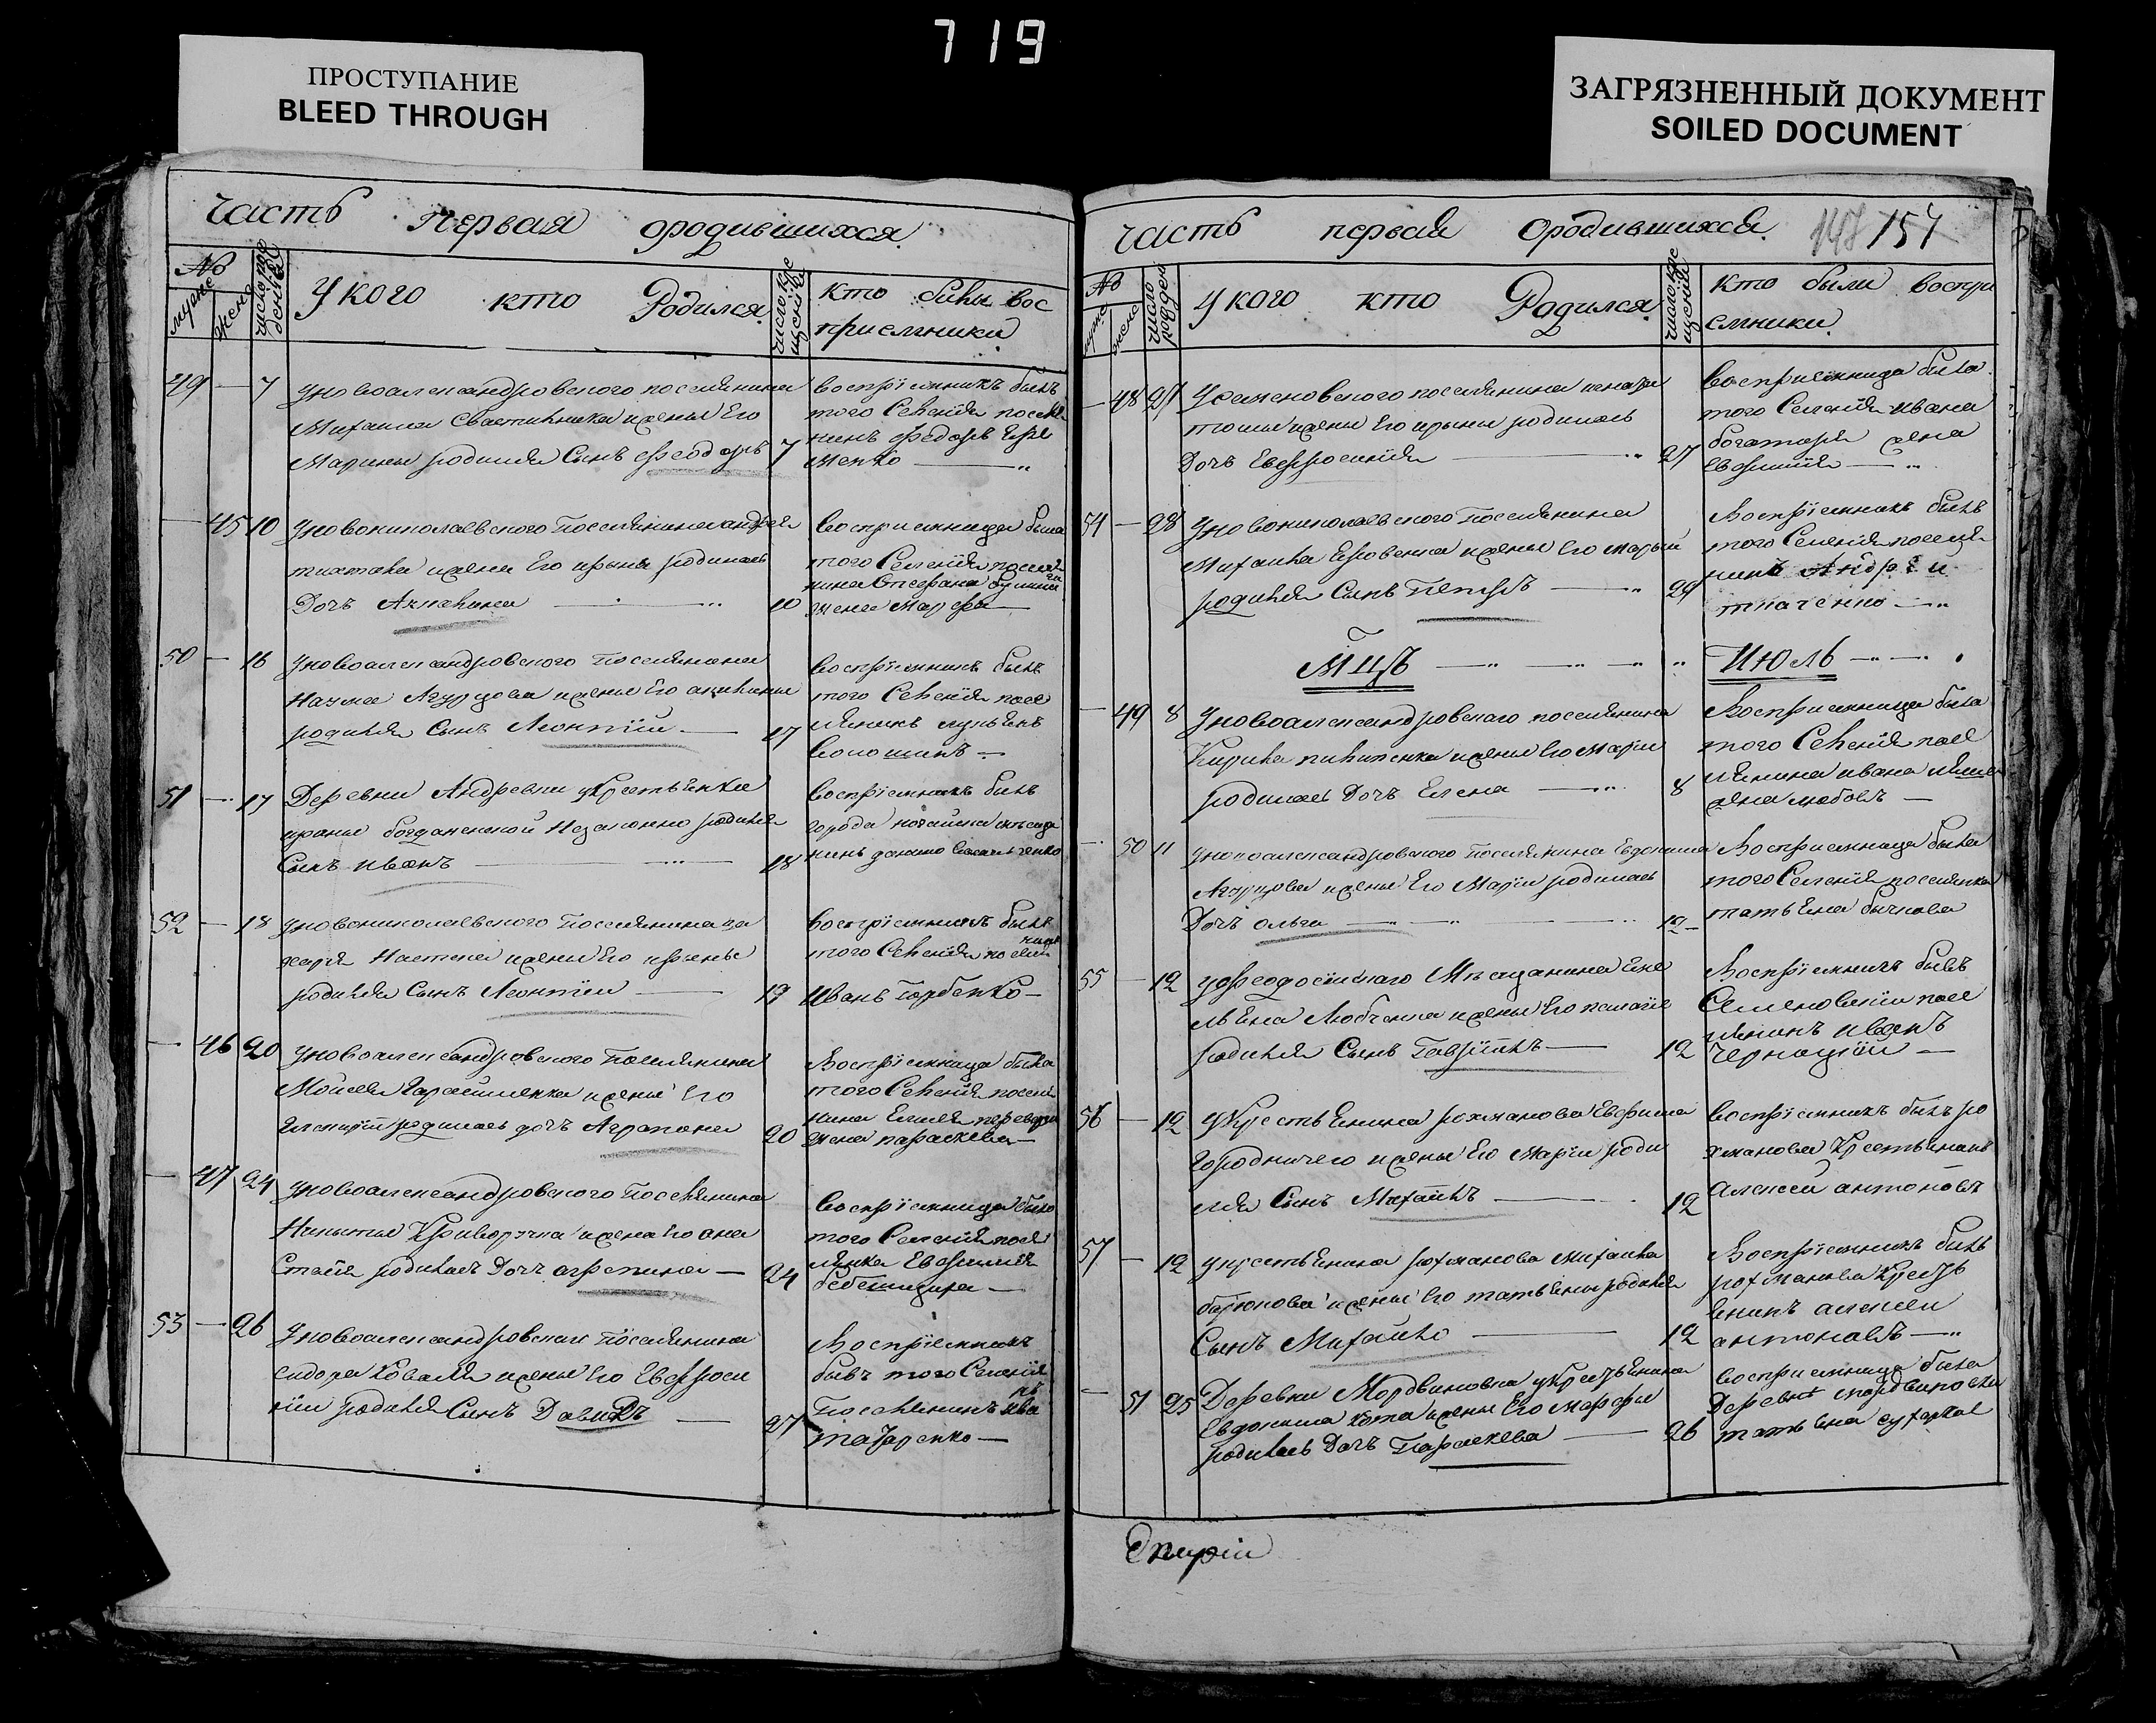 719
ПРОСТУПАНИЕ
BLEED THROUGH
ЗАГРЯЗНЕННЫЙ ДОКУМЕНТ
SOILED DOCUMENT
Часть первая ородившихся
№
муже
жене
число рождения
У кого кто Родился
число крещения
кто были вос
приемники
49 — 7 Уновоалександровского поселянина
Михаила Свастильника и жены Его
Марины родился Сынъ феодоръ 7
воспріемникъ былъ
того Селенія поселя
нинъ федоръ Ефре
менко
— 45 10 Уновониколаевского Поселянина андрея
и жены Его ирыны родилась
Дочъ Акилина 10
воспріемница была
того Селенія поселя
нина Стефана
жена Марфа
50 — 16 Уновоалександровского Поселянина
Наума Агурцова и жены Его акилины
родился Сынъ Леонтій 17
воспріемникъ былъ
того Селенія посе
лянинъ лукьянъ
Волошинъ
51 — 17 Деревни Андревки укрестьянки
ирины богдановской Незаконно родился
Сынъ иванъ 18
воспріемникъ былъ
города ногайска мѣща
нинъ
52 — 18 Уновониколаевского Поселянина за
харія и жены Его ирыны
родился Сынъ Леонтій 19
воспріемникъ былъ
того Селенія поселя
нинъ
Иванъ Горбенко
— 46 20 Уновоалександровского Поселянина
Мойсея Гарасименка и жены Его
родилась дочъ Агрипина 20
воспріемница была
того Селенія поселя
нина
жена параскева
— 47 24 Уновоалександровского Поселянина
Никиты Криворучка и жены Его ана
стасіи родилась Дочъ агрепина 24
воспріемница была
того Селенія посе
лянка Евфимія
53 — 26 Уновоалександровскаго поселянина
сидора Коваля и жены Его Евфроси
ніи родился Сынъ Давидъ 27
Воспріемникъ
былъ того Селенія
Поселянинъ ива
нъ
татаренко
Часть первая Ородившихся
147 157
№
муже
жене
число рожден
У кого кто Родился
число крещеній
кто были воспри
емники
— 48 27 Усеменовского поселянина игната
и жены Его ирыны родилась
Дочъ Евфросинія 27
воспріемница была
того Селенія ивана
богатыря жена
Евфимія
54 — 28 Уновониколаевского Поселянина
Михаила Яровенка и жены Его маріи
родился Сынъ Петръ 29
Воспріемникъ былъ
того Селенія поселя
нинъ Андрей
ткаченко
Мцъ Июль
— 49 8 Уновоалександровскаго поселянина
Кирила пилипенка и жены Его Маріи
родилась Дочъ Елена 8
Воспріемница была
того Селенія посе
лянина ивана
жена любовъ
— 50 11 Уновоалександровского поселянина Евдокима
Агурцова и жены Его Маріи родилась
Дочъ ольга 12
Воспріемница была
того Селенія поселянка
татьяна бычкова
55 — 12 Уфеодосійскаго Мѣщанина Еме
льяна Любченка и жены Его пелагіи
родился Сынъ Гавріилъ 12
Воспріемникъ былъ
Семеновскій посе
лянинъ иванъ
Черноцкій
56 — 12 Укрестьянина рохманова Евфима
Городничего и жены Его Маріи роди
лся Сынъ Михаилъ 12
воспріемникъ былъ ро
хманова Крестьянинъ
Алексей антоновъ
57 — 12 Укрестьянина рохманова Михаила
бирюкова и жены Его татьяны родился
Сынъ Михайло 12
Воспріемникъ былъ
рохманова Кресть
янинъ алексей
антоновъ
— 51 25 Деревни Мордвиновка укрестьянина
Евдокима Кота и жены Его марфы
родилась Дочъ Параскева 26
воспріемница была
Деревни мордвиновки
татьяна